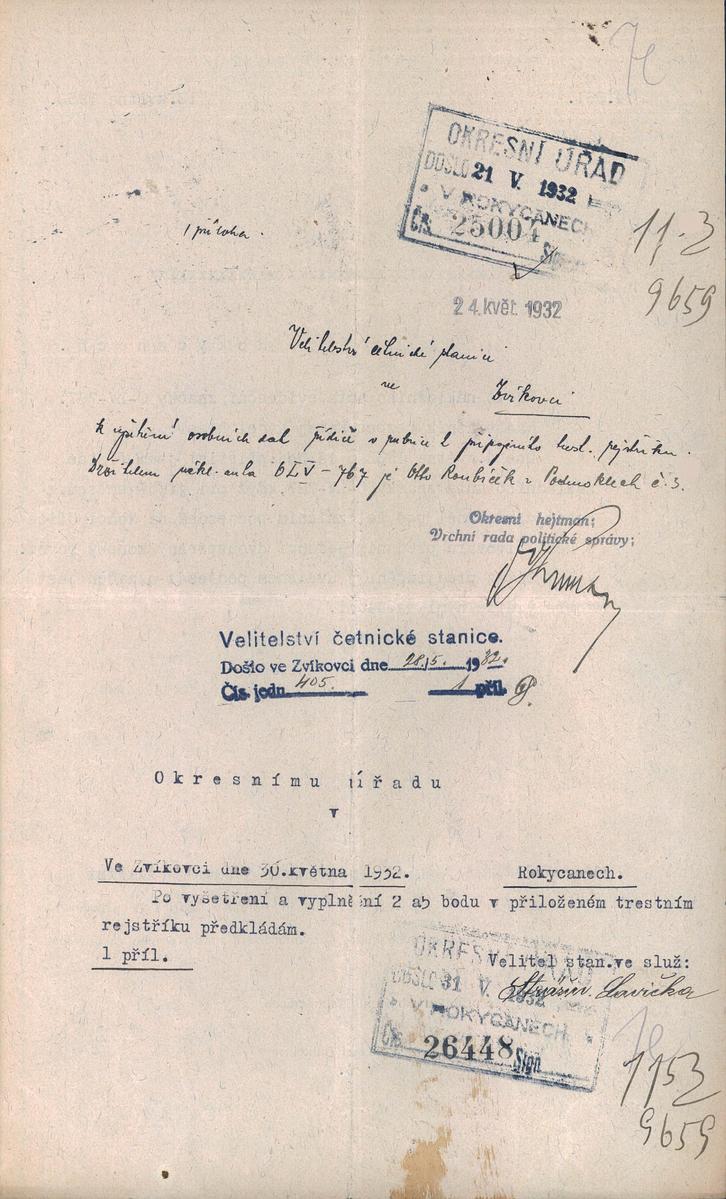 OKRESNÍ ÚŘAD
DOŠLO 21 V. 1932
V ROKYCANECH
Čís. 25004 Sign
1 příloha.
11-3
9659
24. květ. 1932
Velitelství četnické stanici
ve Zvíkovci
k zjištění osobních dat řidiče v rubrice 2 připojeného trest. rejstříku.
Držitelem nákl. auta Otto Roubíček z Podmokl č. 3.
Okresní hejtman;
Vrchní rada politické správy;
Velitelství četnické stanice.
Došlo ve Zvíkovci dne 28./5. 1932.
Čís. jedn. 405. 1 příl.
Okresnímu úřadu
v
Ve Zvíkovci dne 30.května 1932. Rokycanech.
Po vyšetření a vyplnění 2 ab bodu v přiloženém trestním
rejstříku předkládám.
1 příl.
Velitel stan.ve služ:
Strážm. Lavička
OKRESNÍ ÚŘAD
DOŠLO 31 V. 1932
V ROKYCANECH
Čís. 26448 Sign
1153
9659